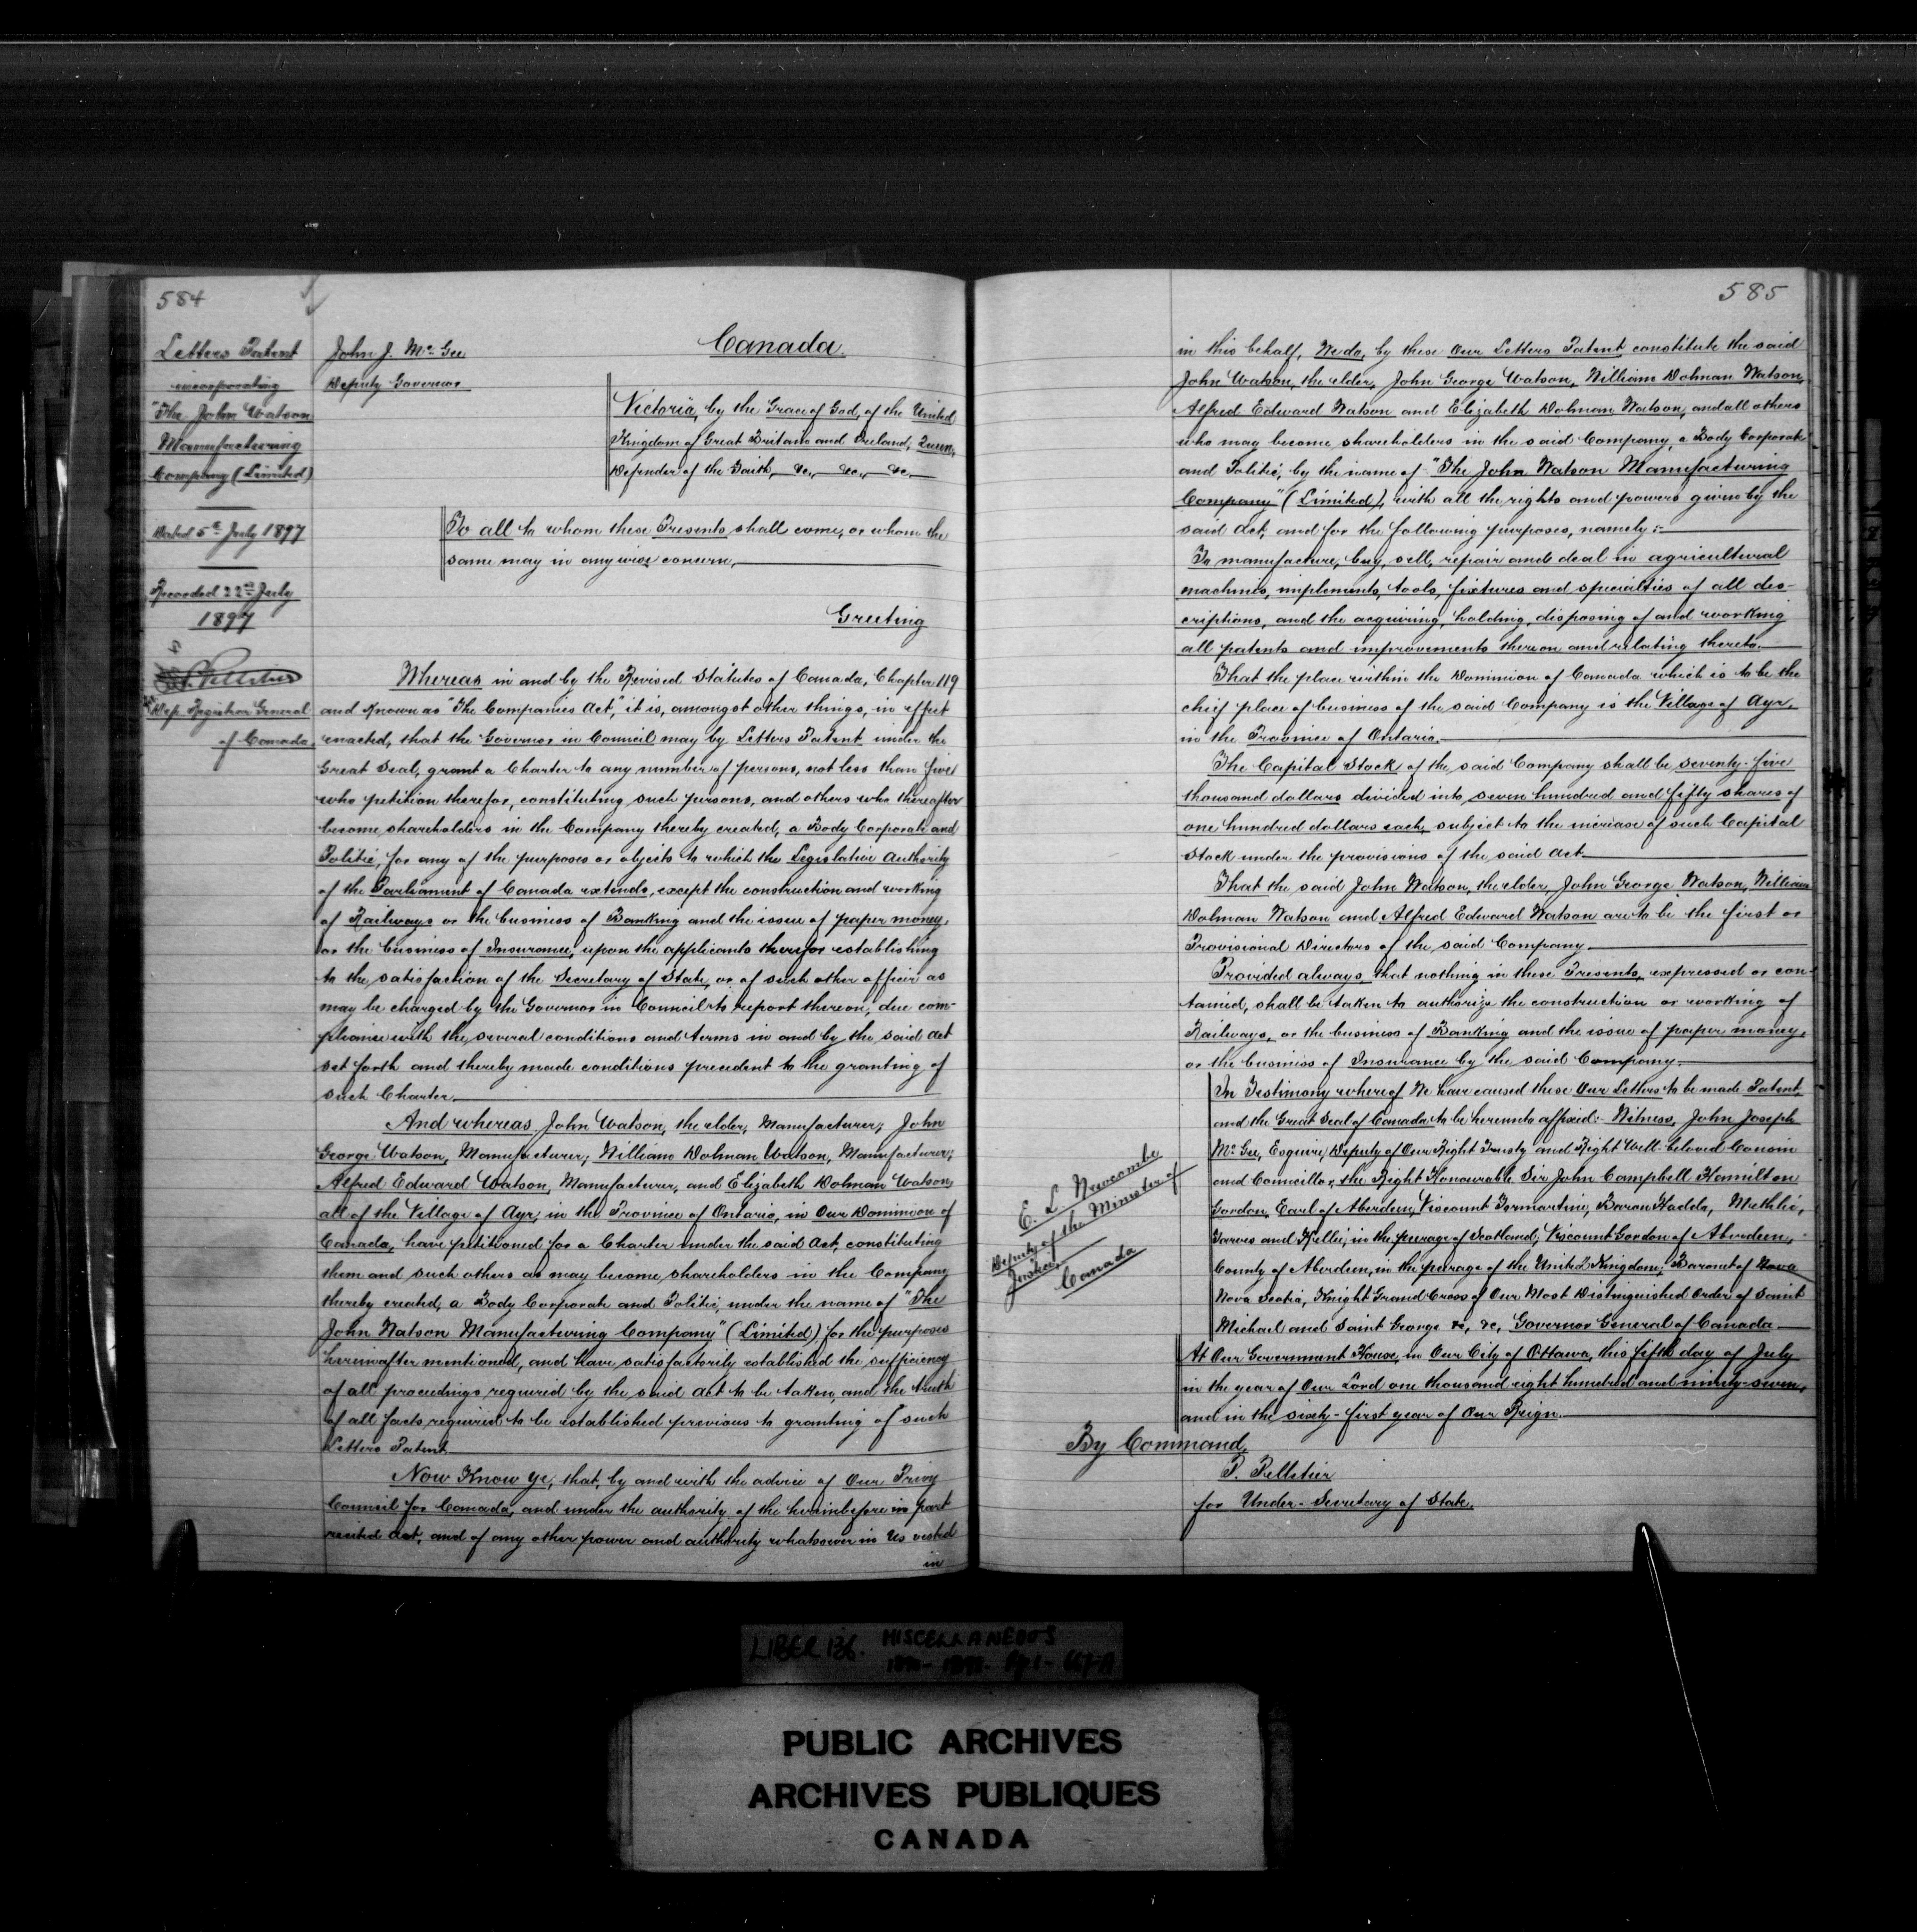 584
Letters Patent
incorporating
"The John Watson
Manufacturing
Company (Limited)
Dated 5th July 1897
Recorded 22nd July
1897
P. Pelletier
Dep. Registrar General
of Canada.
John J. McGee
Deputy Governor
Canada.
Victoria, by the Grace of God, of the United
Kingdom of Great Britain and Ireland, Queen,
Defender of the Faith, &c., &c., &c.
To all to whom these Presents shall come, or whom the
same may in anywise concern,
Greeting
Whereas in and by the Revised Statutes of Canada, Chapter 119
and known as "The Companies Act," it is, amongst other things, in effect
enacted, that the Governor in Council may by Letters Patent under the
Great Seal, grant a Charter to any number of persons, not less than five
who petition therefor, constituting such persons, and others who thereafter
become shareholders in the Company thereby created, a Body Corporate and
Politic, for any of the purposes or objects to which the Legislative Authority
of the Parliament of Canada extends, except the construction and working
of Railways or the business of Banking and the issue of paper money,
or the business of Insurance, upon the applicants therefor establishing
to the satisfaction of the Secretary of State, or of such other officer as
may be charged by the Governor in Council to report thereon, due com-
pliance with the several conditions and terms in and by the said Act
set forth and thereby made conditions precedent to the granting of
such Charter.
And whereas John Watson, the elder, Manufacturer; John
George Watson, Manufacturer; William Dolman Watson, Manufacturer;
Alfred Edward Watson, Manufacturer, and Elizabeth Dolman Watson,
all of the Village of Ayr, in the Province of Ontario, in Our Dominion of
Canada, have petitioned for a Charter under the said Act, constituting
them and such others as may become shareholders in the Company
thereby created, a Body Corporate and Politic, under the name of "The
John Watson Manufacturing Company" (Limited) for the purposes
hereinafter mentioned, and have satisfactorily established the sufficiency
of all proceedings required by the said Act to be taken, and the truth
of all facts required to be established previous to granting of such
Letters Patent.
Now Know ye, that, by and with the advice of Our Privy
Council for Canada, and under the authority of the hereinbefore in part
recited Act, and of any other power and authority whatsoever in Us vested
in
585
in this behalf, We do, by these Our Letters Patent constitute the said
John Watson, the elder, John George Watson, William Dolman Watson,
Alfred Edward Watson and Elizabeth Dolman Watson, and all others
who may become shareholders in the said Company, a Body Corporate
and Politic, by the name of "The John Watson Manufacturing
Company" (Limited), with all the rights and powers given by the
said Act, and for the following purposes, namely:-
To manufacture, buy, sell, repair and deal in agricultural
machines, implements, tools, fixtures and specialties of all des-
criptions, and the acquiring, holding, disposing of and working
all patents and improvements thereon and relating thereto.
That the place within the Dominion of Canada which is to be the
chief place of business of the said Company is the Village of Ayr,
in the Province of Ontario.
The Capital Stock of the said Company shall be seventy-five
thousand dollars divided into seven hundred and fifty shares of
one hundred dollars each, subject to the increase of such Capital
Stock under the provisions of the said Act.
That the said John Watson, the elder, John George Watson, William
Dolman Watson and Alfred Edward Watson are to be the first or
Provisional Directors of the said Company.
Provided always, that nothing in these Presents, expressed or con-
tained, shall be taken to authorize the construction or working of
Railways, or the business of Banking and the issue of paper money,
or the business of Insurance by the said Company.
In Testimony whereof We have caused these Our Letters to be made Patent,
and the Great Seal of Canada to be hereunto affixed:- Witness, John Joseph
McGee, Esquire, Deputy of Our Right Trusty and Right Well-beloved Cousin
and Councillor, the Right Honourable Sir John Campbell Hamilton
Gordon, Earl of Aberdeen, Viscount Formartine, Baron Haddo, Methlic,
Tarves and Kellie, in the peerage of Scotland; Viscount Gordon of Aberdeen,
County of Aberdeen, in the peerage of the United Kingdom; Baronet of Nova
Nova Scotia, Knight Grand Cross of Our Most Distinguished Order of Saint
Michael and Saint George &c., &c., Governor General of Canada
At Our Government House, in Our City of Ottawa, this fifth day of July
in the year of Our Lord one thousand eight hundred and ninety-seven,
and in the sixty-first year of Our Reign.
E. L. Newcombe
Deputy of the Minister of
Justice,
Canada
By Command,
P. Pelletier
for Under-Secretary of State.
LIBER 136. MISCELLANEOUS
PUBLIC ARCHIVES
ARCHIVES PUBLIQUES
CANADA